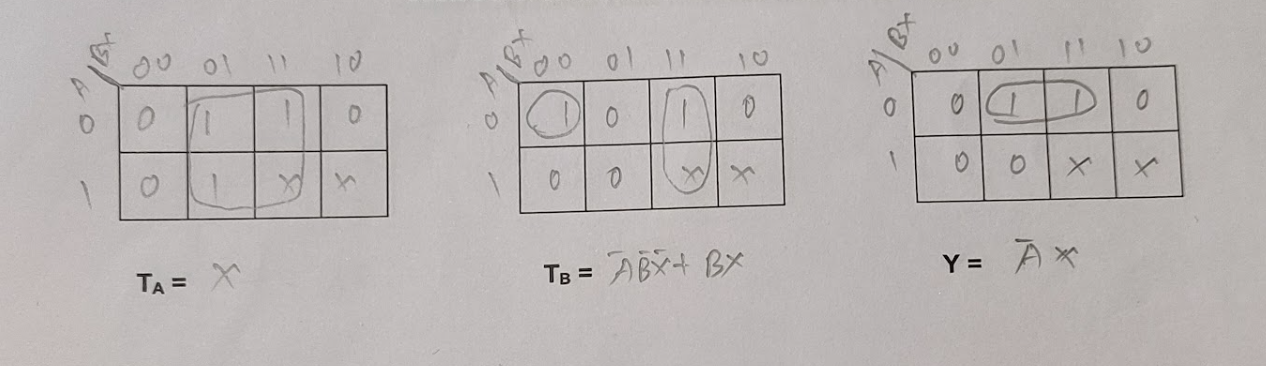 A/BX 00 01 11 10
0 0 1 1 0
1 0 1 X X
T_A = X
A/BX 00 01 11 10
0 1 0 1 0
1 0 0 X X
T_B = A̅B̅X̅ + BX
A/BX 00 01 11 10
0 0 1 1 0
1 0 0 X X
Y = A̅X